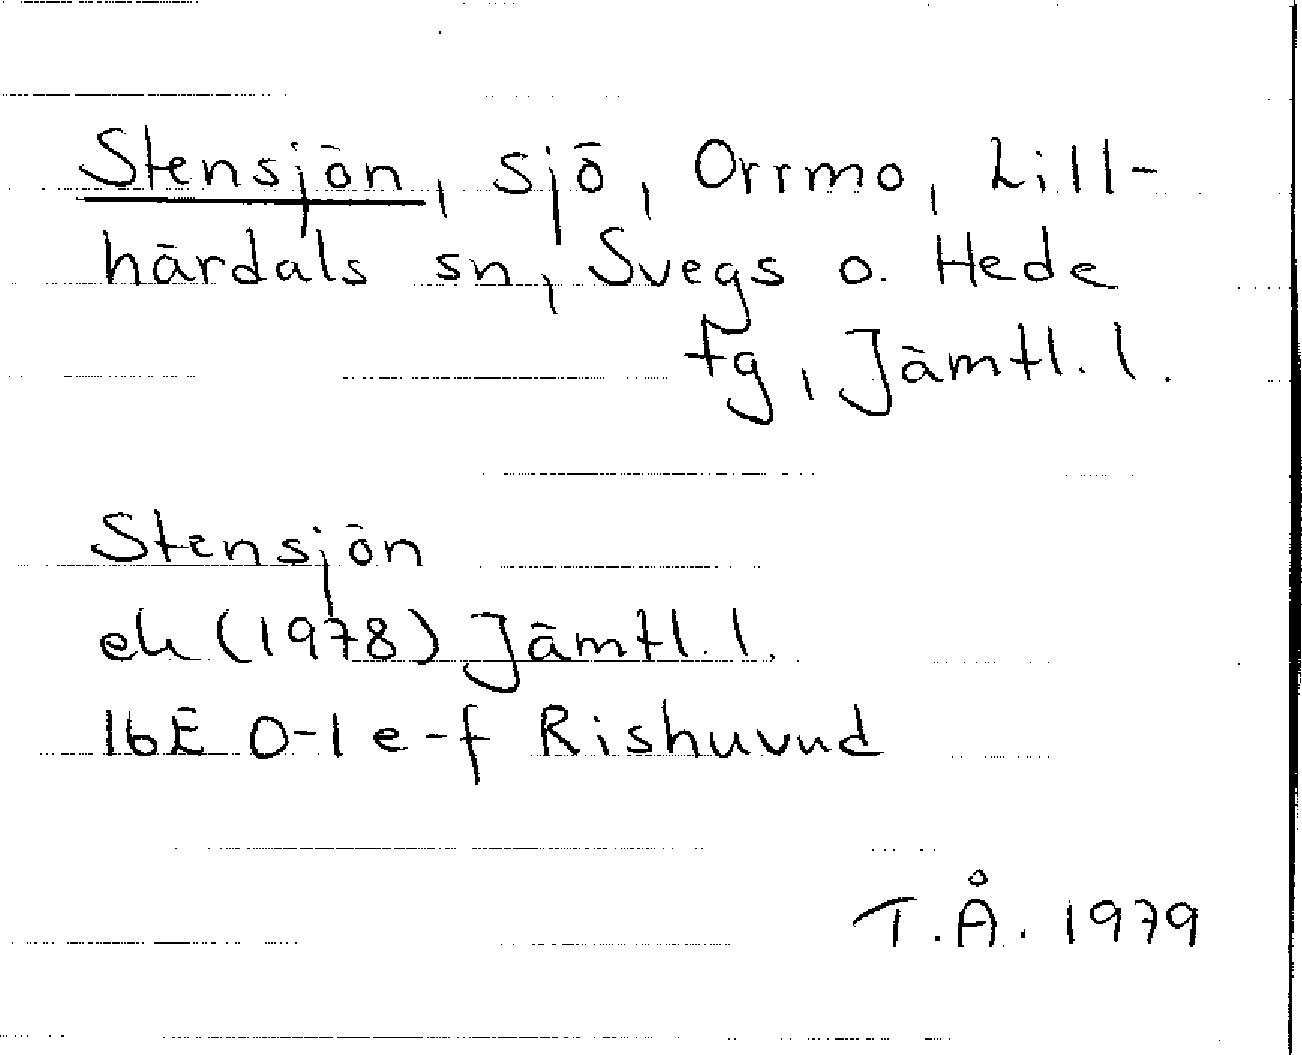 Stensjön, sjö, Orrmo, Lill-
härdals sn, Svegs o. Hede
tg, Jämtl. l.
Stensjön
ek (1978) Jämtl. l.
16E 0-1 e-f Rishuvud
T.Å. 1979